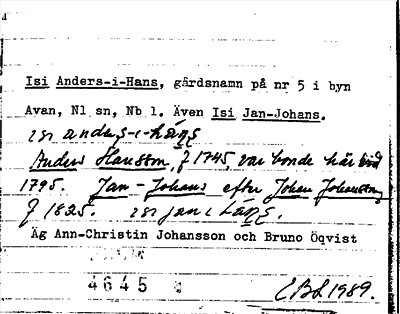 Isi Anders-i-Hans, gårdsnamn på nr 5 i byn
Avan, Nl sn, Nb l. Även Isi Jan-Johans.
isi anders-i-hans
Anders Hansson, f 1745, var bonde här
1795. Jan-Johans efter Johan Johansson,
f 1825. isi jan
Äg Ann-Christin Johansson och Bruno Öqvist
4645
EBL 1989.